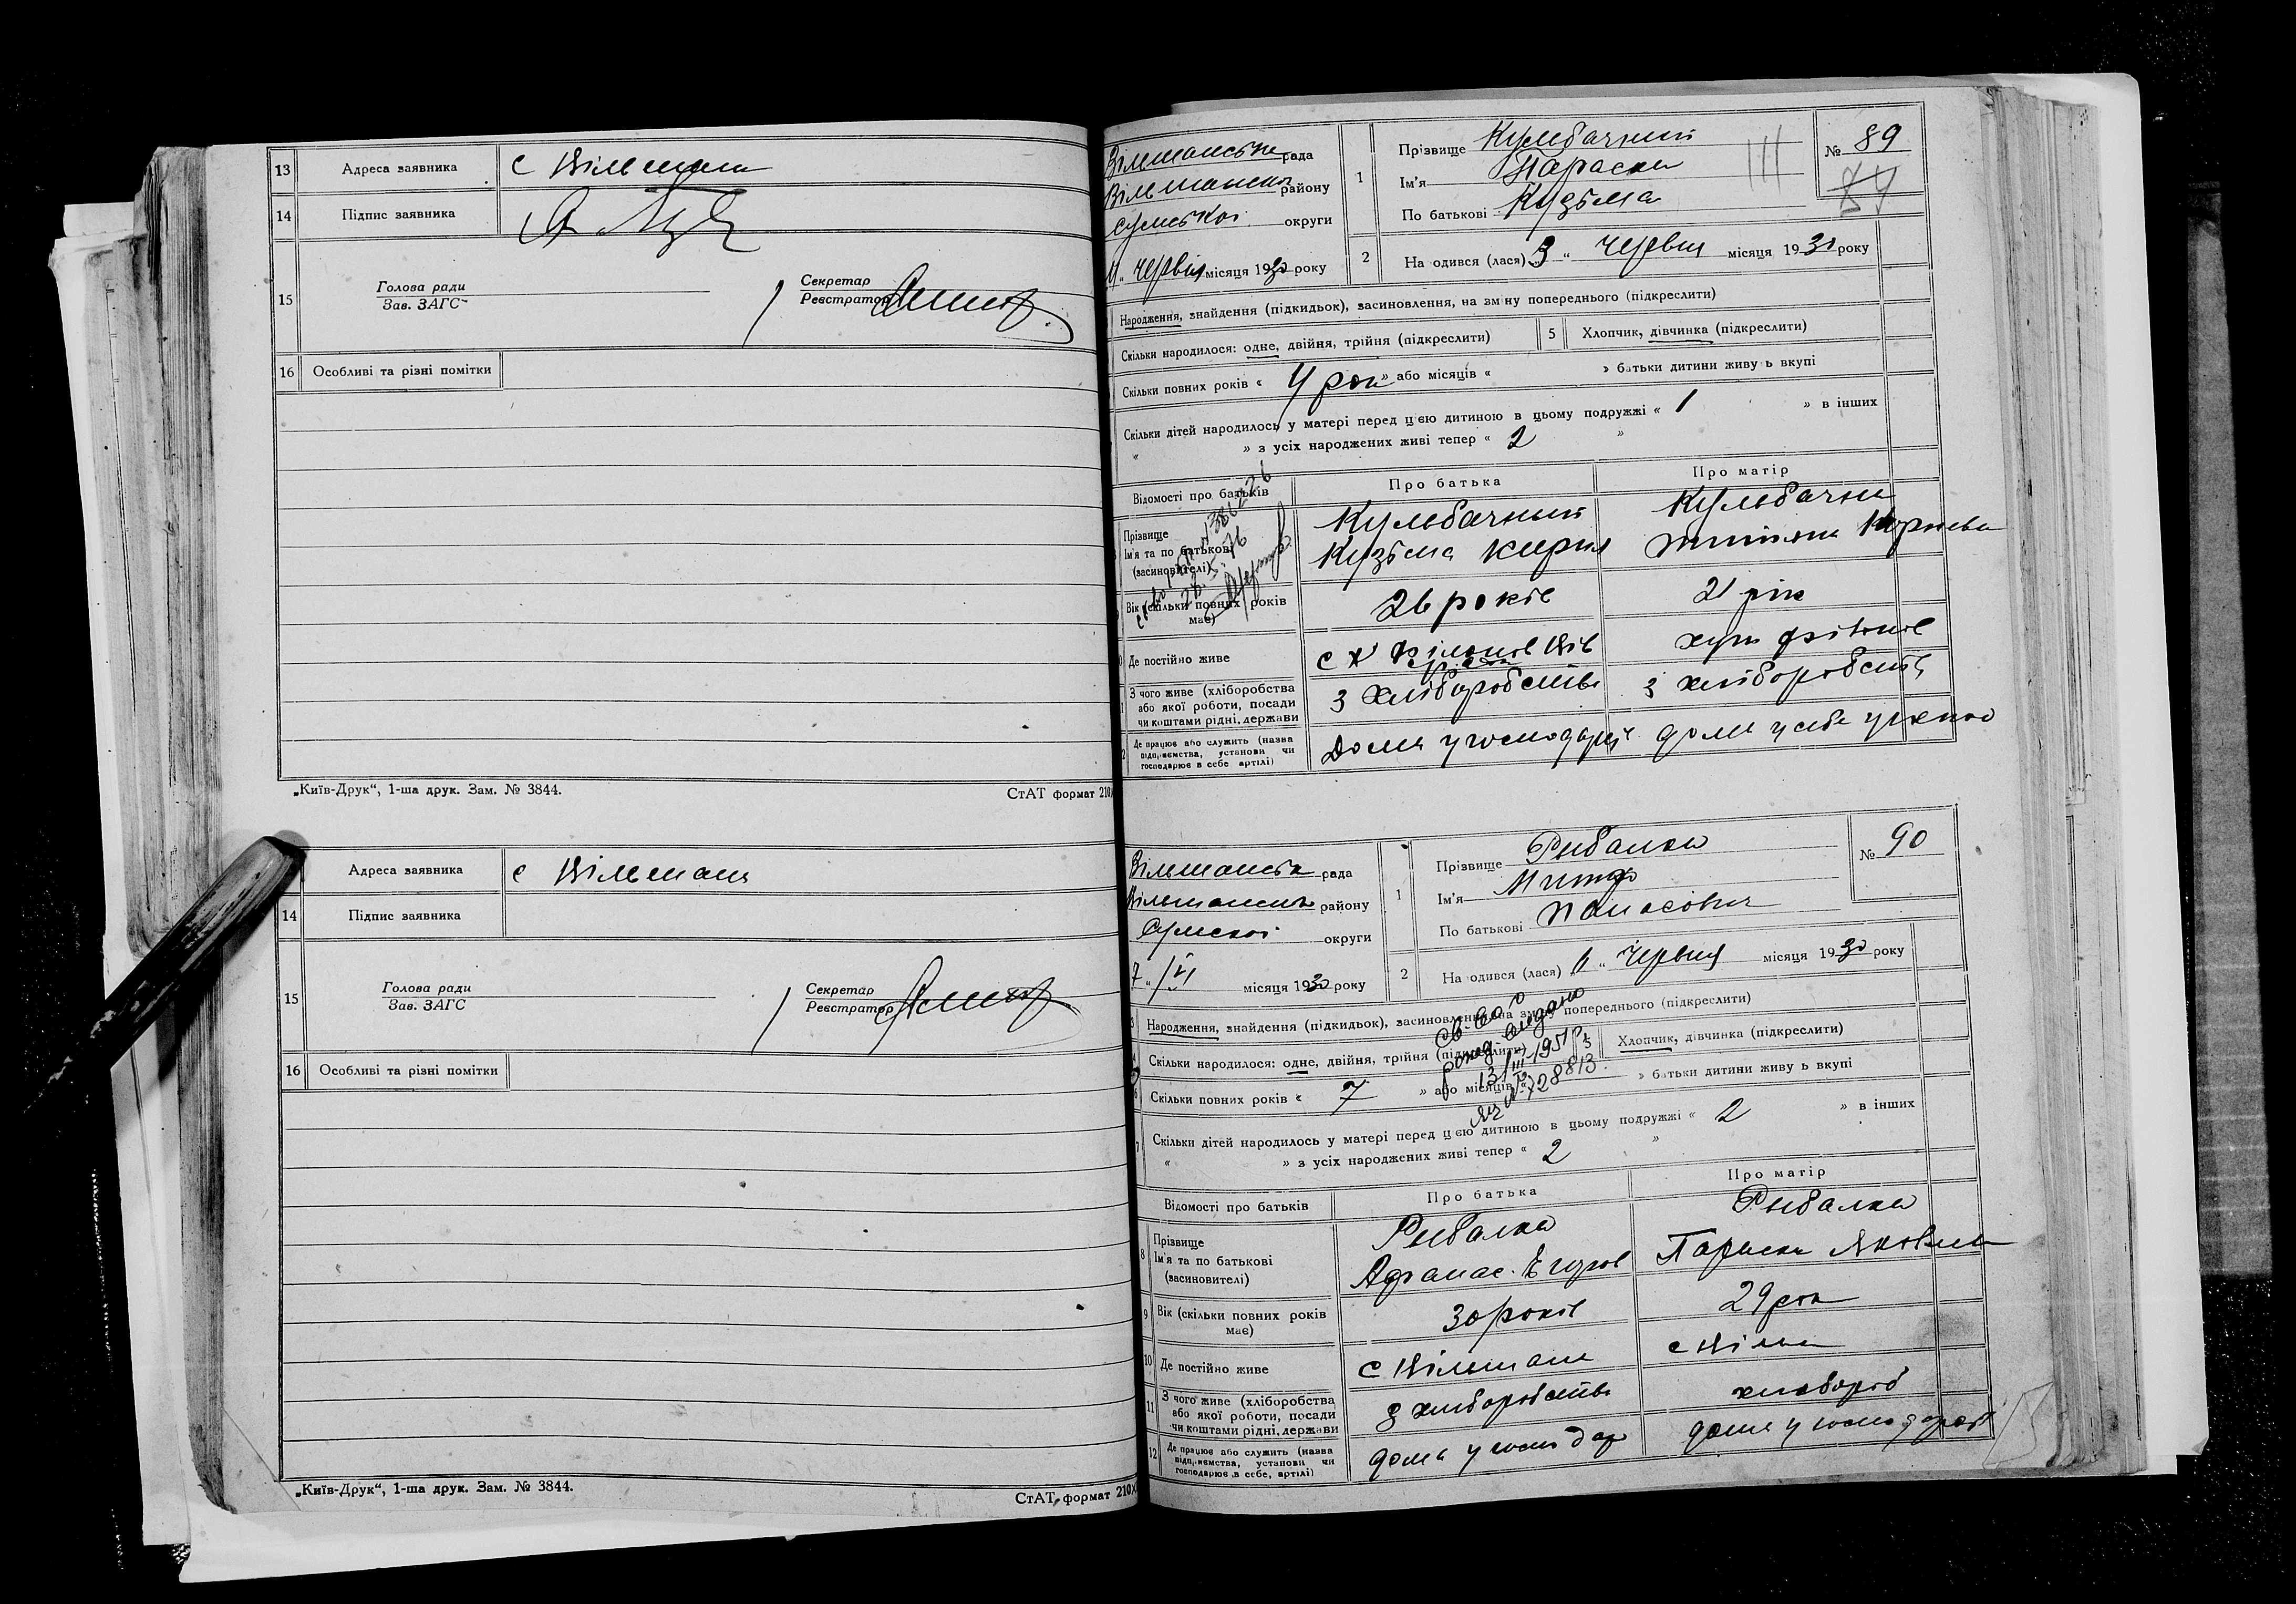 13 Адреса заявника с Вільшани
14 Підпис заявника
15 Голова ради
Зав. ЗАГС
Секретар
Реєстратор
16 Особливі та різні помітки
„Київ-Друк“, 1-ша друк. Зам. № 3844.
СтАТ формат 210
Адреса заявника с Вільшана
14 Підпис заявника
15 Голова ради
Зав. ЗАГС
Секретар
Реєстратор
16 Особливі та різні помітки
„Київ-Друк“, 1-ша друк. Зам. № 3844.
СтАТ формат 210х
Вільшанська рада
Вільшанська району
Сумської округи
11 „ Червня місяця 1930 року
1 Прізвище Кульбачний
Ім'я Параска
По батькові Кузьма
№ 89
84
2 На одився (лася) 3 „ Червня місяця 1930 року
Народження, знайдення (підкидьок), засиновлення, на зміну попереднього (підкреслити)
Скільки народилося: одне, двійня, трійня (підкреслити) 5 Хлопчик, дівчинка (підкреслити)
Скільки повних років « 4 рок » або місяців « » батьки дитини живуть вкупі
Скільки дітей народилось у матері перед цією дитиною в цьому подружжі « 1 » в інших
« » з усіх народжених живі тепер « 2 »
Відомості про батьків Про батька Про матір
Прізвище Кульбачний Кульбачна
Ім'я та по батькові Кузьма Кирил
(засиновителі)
Вік (скільки повних років має) 26 років 21 рік
Де постійно живе
З чого живе (хліборобства або якої роботи, посади чи коштами рідні, держави з хліборобства з хліборобств
Де працює або служить (назва підприємства, установи чи господарює в себе артілі) Дома у господар дома у себе
Вільшанська рада
Вільшанська району
Сумської округи
7 „ VI місяця 1930 року
1 Прізвище Рибалка
Ім'я
По батькові Панасович
№ 90
2 На одився (лася) 1 „ Червня місяця 1930 року
3 Народження, знайдення (підкидьок), засиновлення, на зміну попереднього (підкреслити)
Скільки народилося: одне, двійня, трійня (підкреслити) 5 Хлопчик, дівчинка (підкреслити)
св-во о
рожд. выдано
13/III 1951 г.
№ 728813
6 Скільки повних років « 7 » або місяців « » батьки дитини живуть вкупі
7 Скільки дітей народилось у матері перед цією дитиною в цьому подружжі « 2 » в інших
« » з усіх народжених живі тепер « 2 »
Відомості про батьків Про батька Про матір
8 Прізвище Рибалка Рибалка
Ім'я та по батькові Афанас. Егоров Параска Яковна
(засиновителі)
9 Вік (скільки повних років має) 30 років 29 рок
10 Де постійно живе с Вільшана с Вільш
11 З чого живе (хліборобства або якої роботи, посади чи коштами рідні, держави з хліборобства хлібороб
12 Де працює або служить (назва підприємства, установи чи господарює в себе, артілі) дома у господар дома у господарст